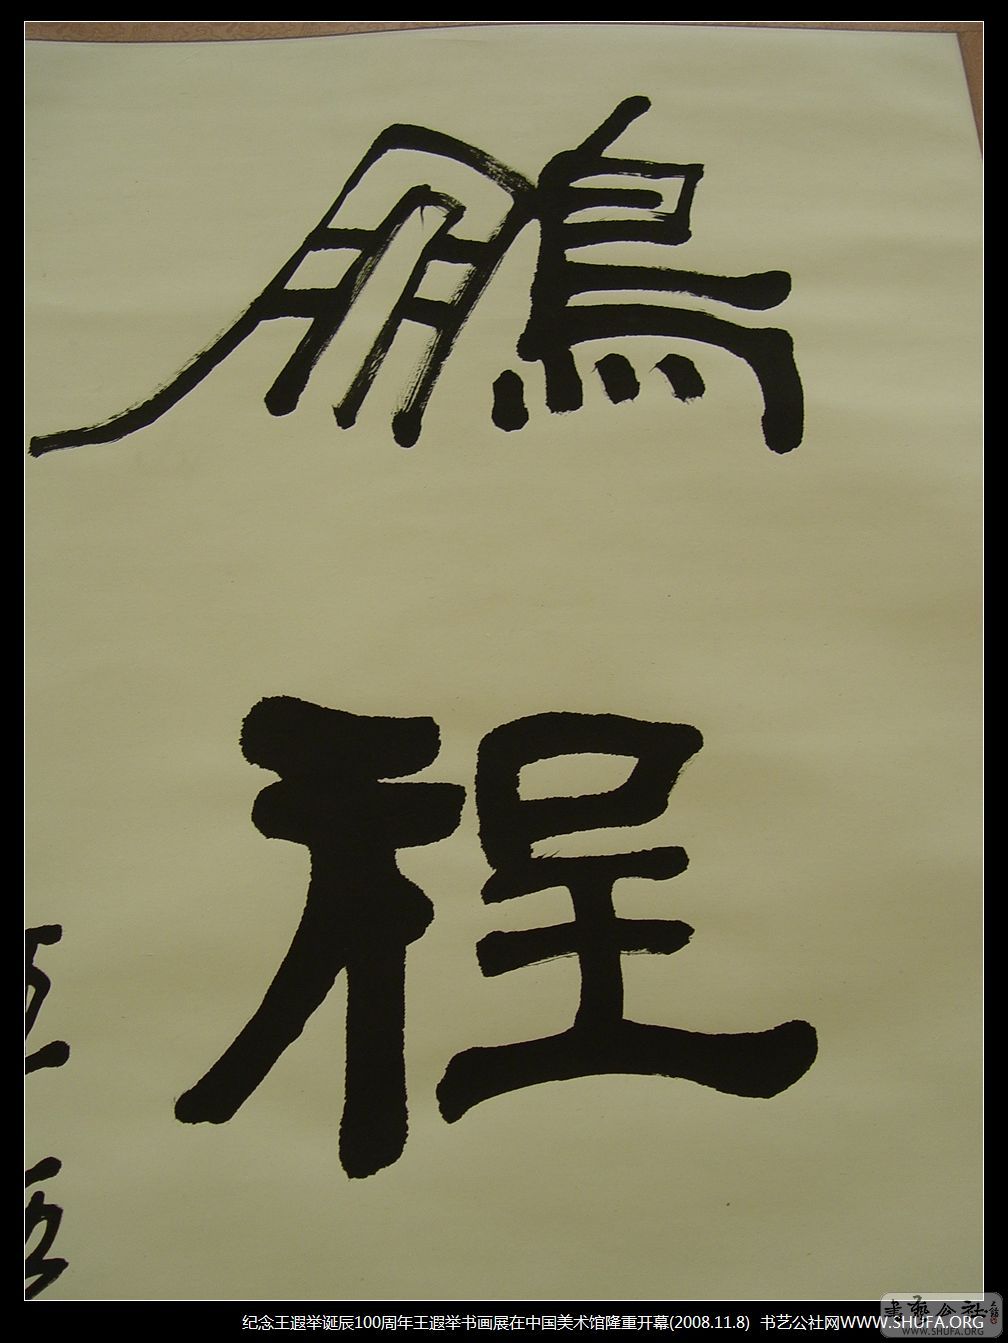 鵬
程
纪念王遐举诞辰100周年王遐举书画展在中国美术馆隆重开幕(2008.11.8) 书艺公社网WWW.SHUFA.ORG
书艺公社
WWW.SHUFA.ORG